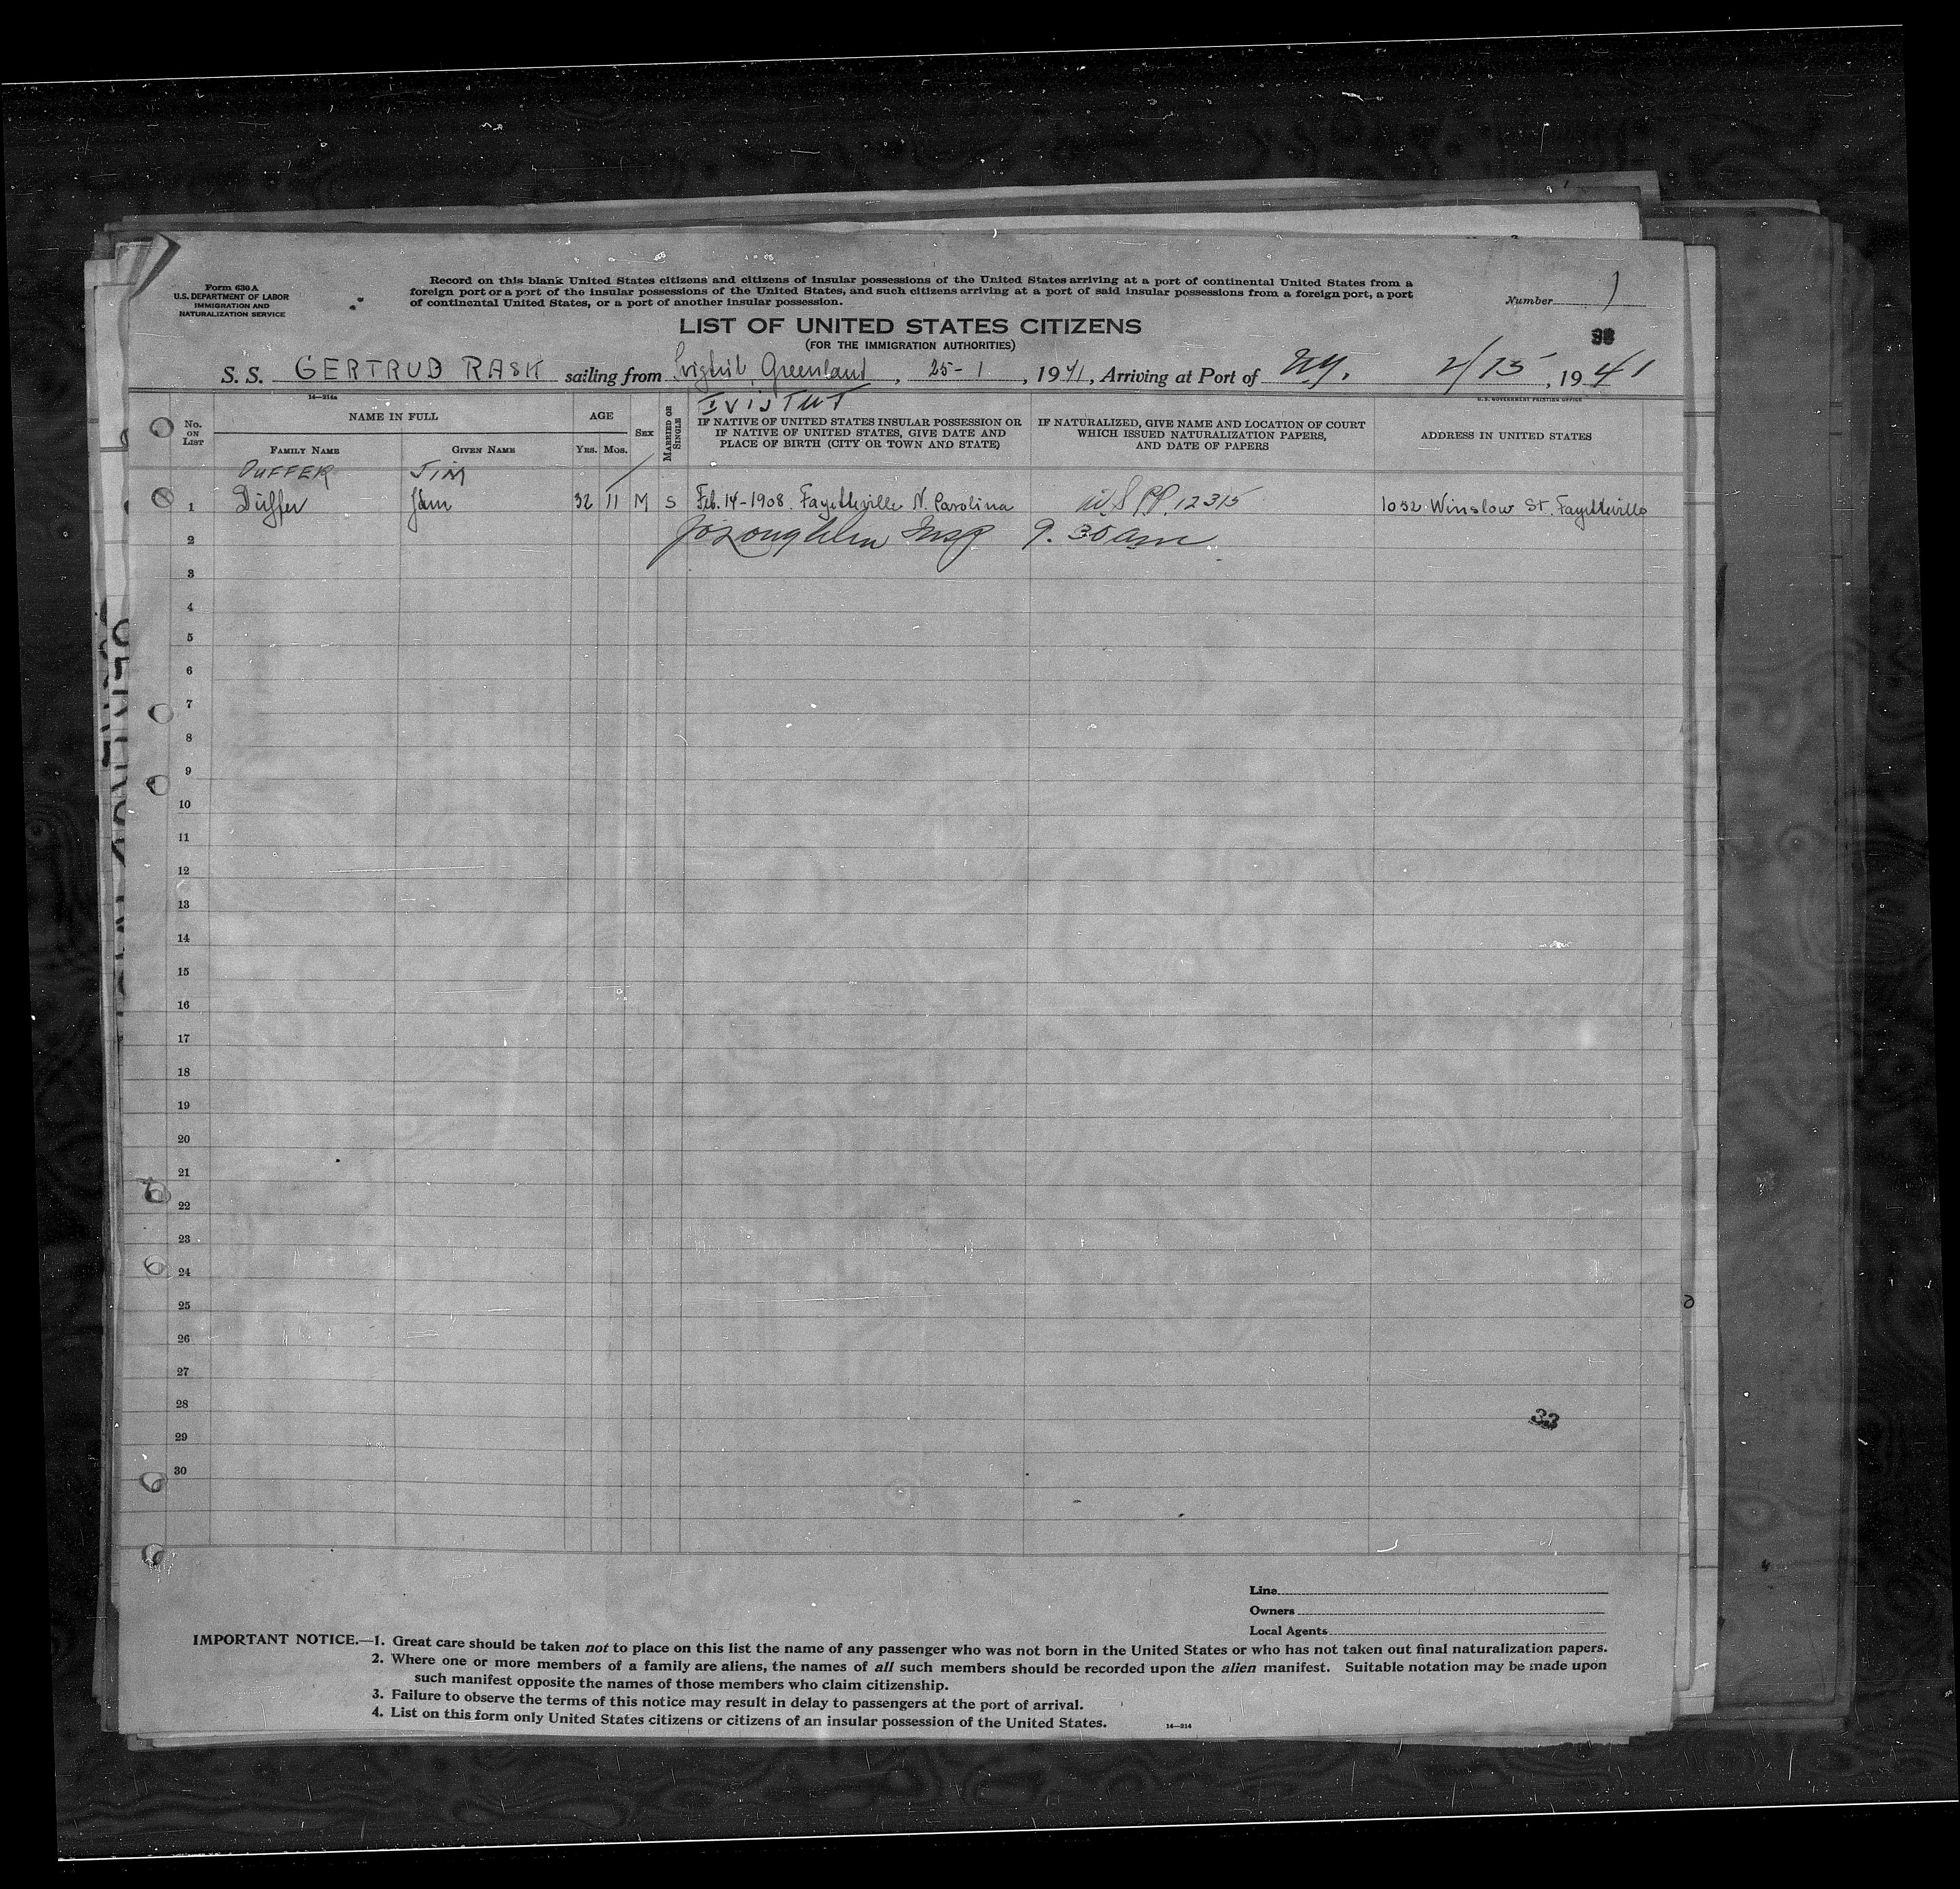 Form 630 A
U.S. DEPARTMENT OF LABOR
IMMIGRATION AND
NATURALIZATION SERVICE
Record on this blank United States citizens and citizens of insular possessions of the United States arriving at a port of continental United States from a
foreign port or a port of the insular possessions of the United States, and such citizens arriving at a port of said insular possessions from a foreign port, a port
of continental United States, or a port of another insular possession.
Number 1
LIST OF UNITED STATES CITIZENS
(FOR THE IMMIGRATION AUTHORITIES)
S. S. GERTRUD RASK sailing from Ivigtut, Greenland, 25-1, 1941, Arriving at Port of N.Y. 2/15, 1941
IVISTUT
14—214a
U. S. GOVERNMENT PRINTING OFFICE
No. ON LIST
NAME IN FULL
FAMILY NAME
GIVEN NAME
AGE
YRS. MOS.
SEX
MARRIED OR SINGLE
IF NATIVE OF UNITED STATES INSULAR POSSESSION OR
IF NATIVE OF UNITED STATES, GIVE DATE AND
PLACE OF BIRTH (CITY OR TOWN AND STATE)
IF NATURALIZED, GIVE NAME AND LOCATION OF COURT
WHICH ISSUED NATURALIZATION PAPERS,
AND DATE OF PAPERS
ADDRESS IN UNITED STATES
DUFFER JIM
1 Duffer Jim 32 11 M S Feb. 14-1908. Fayetteville N. Carolina U.S. P.P. 12315 1032 Winslow ST. Fayetteville
2 Insp 9.30 am
3
4
5
6
7
8
9
10
11
12
13
14
15
16
17
18
19
20
21
22
23
24
25
26
27
28
33
29
30
Line
Owners
Local Agents
IMPORTANT NOTICE.—1. Great care should be taken not to place on this list the name of any passenger who was not born in the United States or who has not taken out final naturalization papers.
2. Where one or more members of a family are aliens, the names of all such members should be recorded upon the alien manifest. Suitable notation may be made upon
such manifest opposite the names of those members who claim citizenship.
3. Failure to observe the terms of this notice may result in delay to passengers at the port of arrival.
4. List on this form only United States citizens or citizens of an insular possession of the United States.
14—214